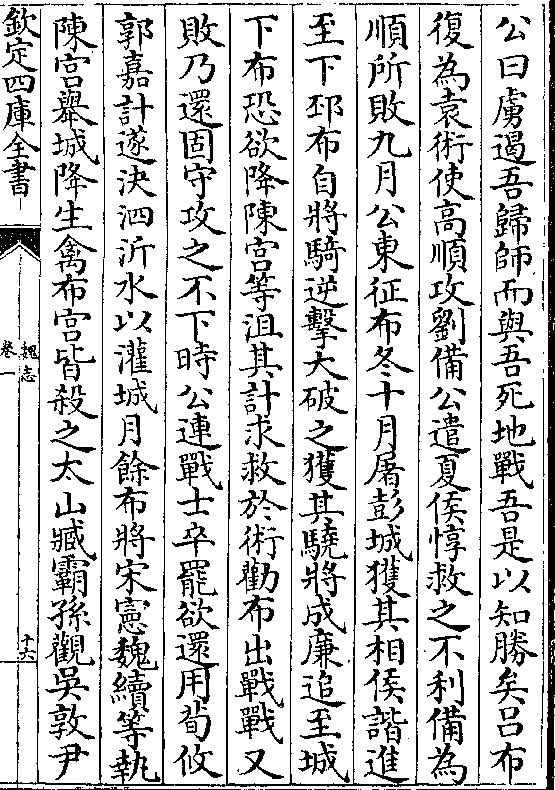 公曰虜遏吾歸師而與吾死地戰吾是以知勝矣呂布
復為袁術使高順攻劉備公遣夏侯惇救之不利備為
順所敗九月公東征布冬十月屠彭城獲其相侯諧進
至下邳布自將騎逆擊大破之獲其驍將成廉追至城
下布恐欲降陳宮等沮其計求救於術勸布出戰戰又
敗乃還固守攻之不下時公連戰士卒罷欲還用荀攸
郭嘉計遂決泗沂水以灌城月餘布將宋憲魏續等執
陳宮舉城降生禽布宮皆殺之太山臧霸孫觀吳敦尹
欽定四庫全書
魏志
卷一
十六